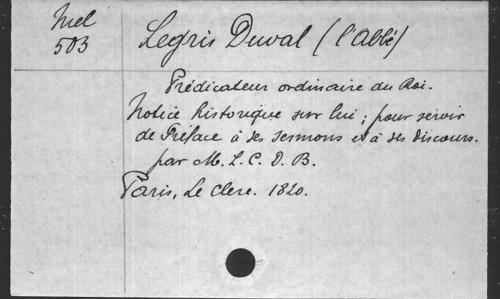 Mel
503
Legris Duval (l'Abbé)
Prédicateur ordinaire du Roi.
Notice historique sur lui ; pour servir
de Préface à ses sermons et à ses discours.
par M. L. C. D. B.
Paris, Le Clere. 1820.